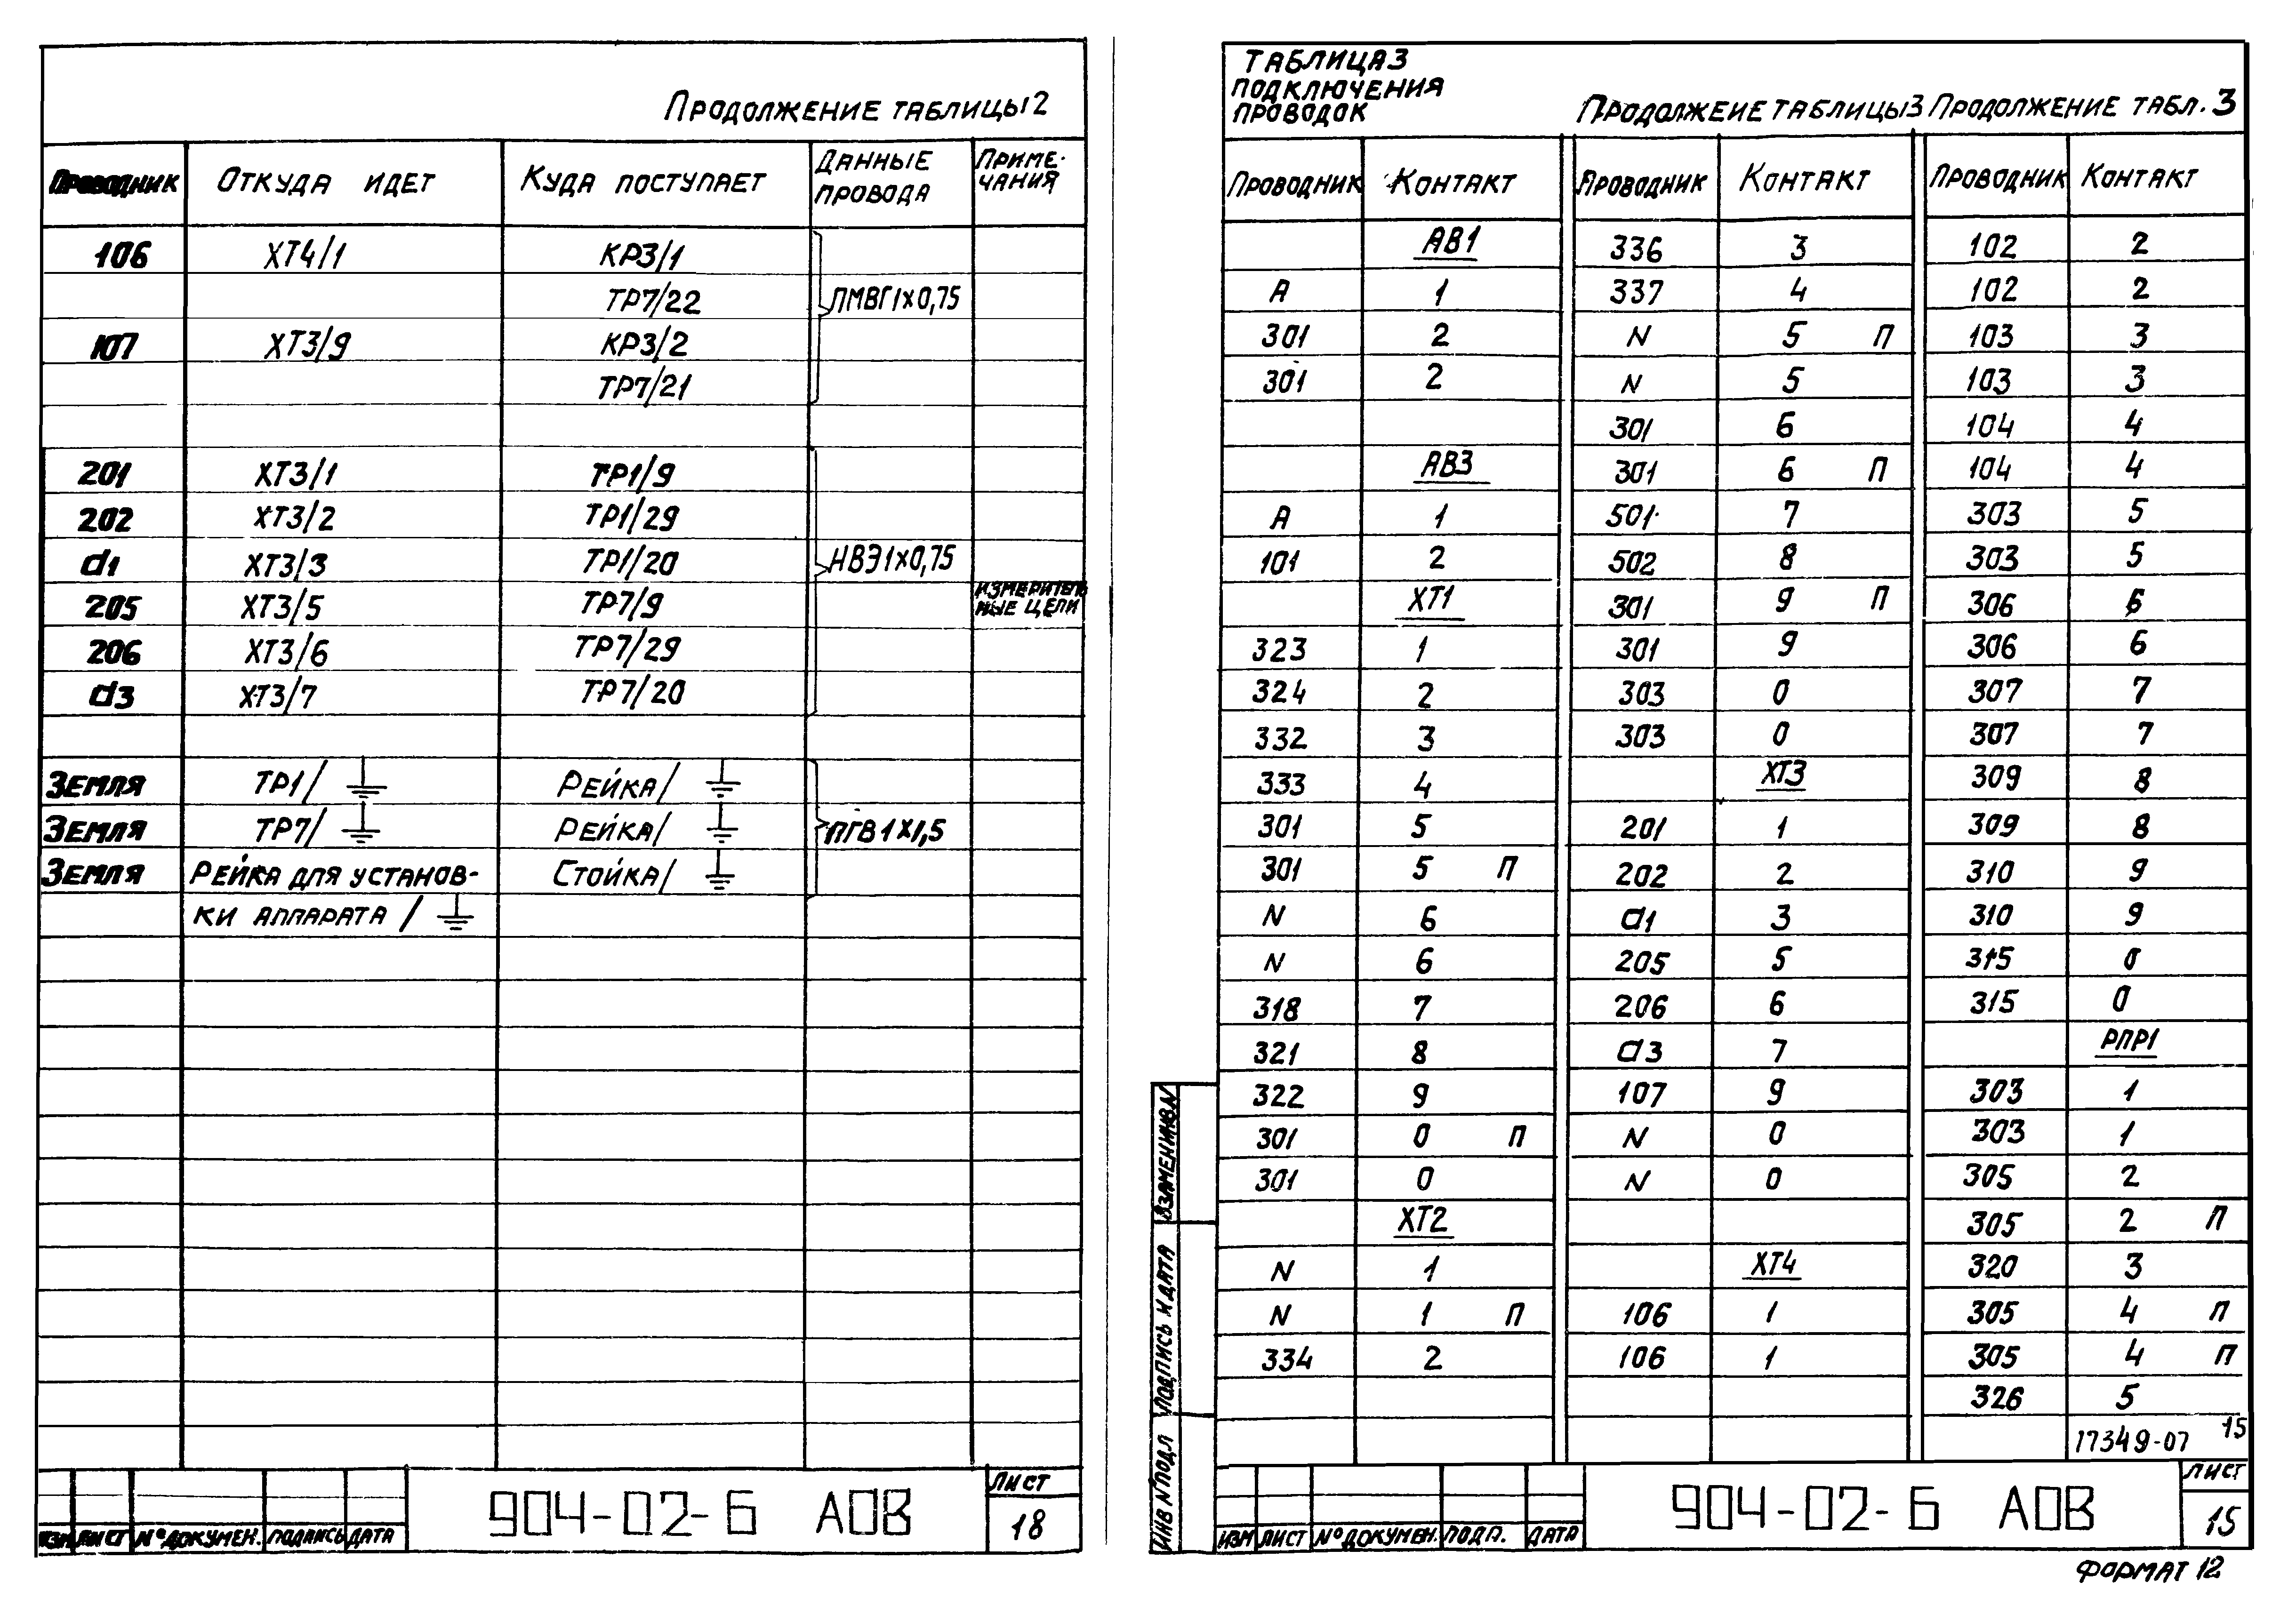 Продолжение таблицы 2
Проводник Откуда идет Куда поступает Данные провода Приме-чания
106 ХТ4/1 КР3/1
ТР7/22 ПМВГ1х0,75
107 ХТ3/9 КР3/2
ТР7/21
201 ХТ3/1 ТР1/9
202 ХТ3/2 ТР1/29
d1 ХТ3/3 ТР1/20 НВЭ1х0,75
205 ХТ3/5 ТР7/9 Измеритель ные цепи
206 ХТ3/6 ТР7/29
d3 ХТ3/7 ТР7/20
Земля ТР1/ Рейка/
Земля ТР7/ Рейка/ ПГВ1х1,5
Земля Рейка для установ- Стойка/
ки аппарата /
904-02-6 АОВ
Лист
18
Изм Лист №докумен. Подпись Дата
Таблица3
подключения
проводок
Продолжеие таблицы3 Продолжение табл. 3
Проводник Контакт Проводник Контакт Проводник Контакт
АВ1 336 3 102 2
А 1 337 4 102 2
301 2 N 5 П 103 3
301 2 N 5 103 3
301 6 104 4
АВ3 301 6 П 104 4
А 1 501 7 303 5
101 2 502 8 303 5
ХТ1 301 9 П 306 6
323 1 301 9 306 6
324 2 303 0 307 7
332 3 303 0 307 7
333 4 ХТ3 309 8
301 5 201 1 309 8
301 5 П 202 2 310 9
N 6 d1 3 310 9
N 6 205 5 315 0
318 7 206 6 315 0
321 8 d3 7 РПР1
322 9 107 9 303 1
301 0 П N 0 303 1
301 0 N 0 305 2
ХТ2 305 2 П
N 1 ХТ4 320 3
N 1 П 106 1 305 4 П
334 2 106 1 305 4 П
326 5
17349-07 15
Взамен инв.N
Подпись и дата
Инв N подл
904-02-6 АОВ
Лист
15
Изм Лист №докумен. Подп. Дата
Формат 12